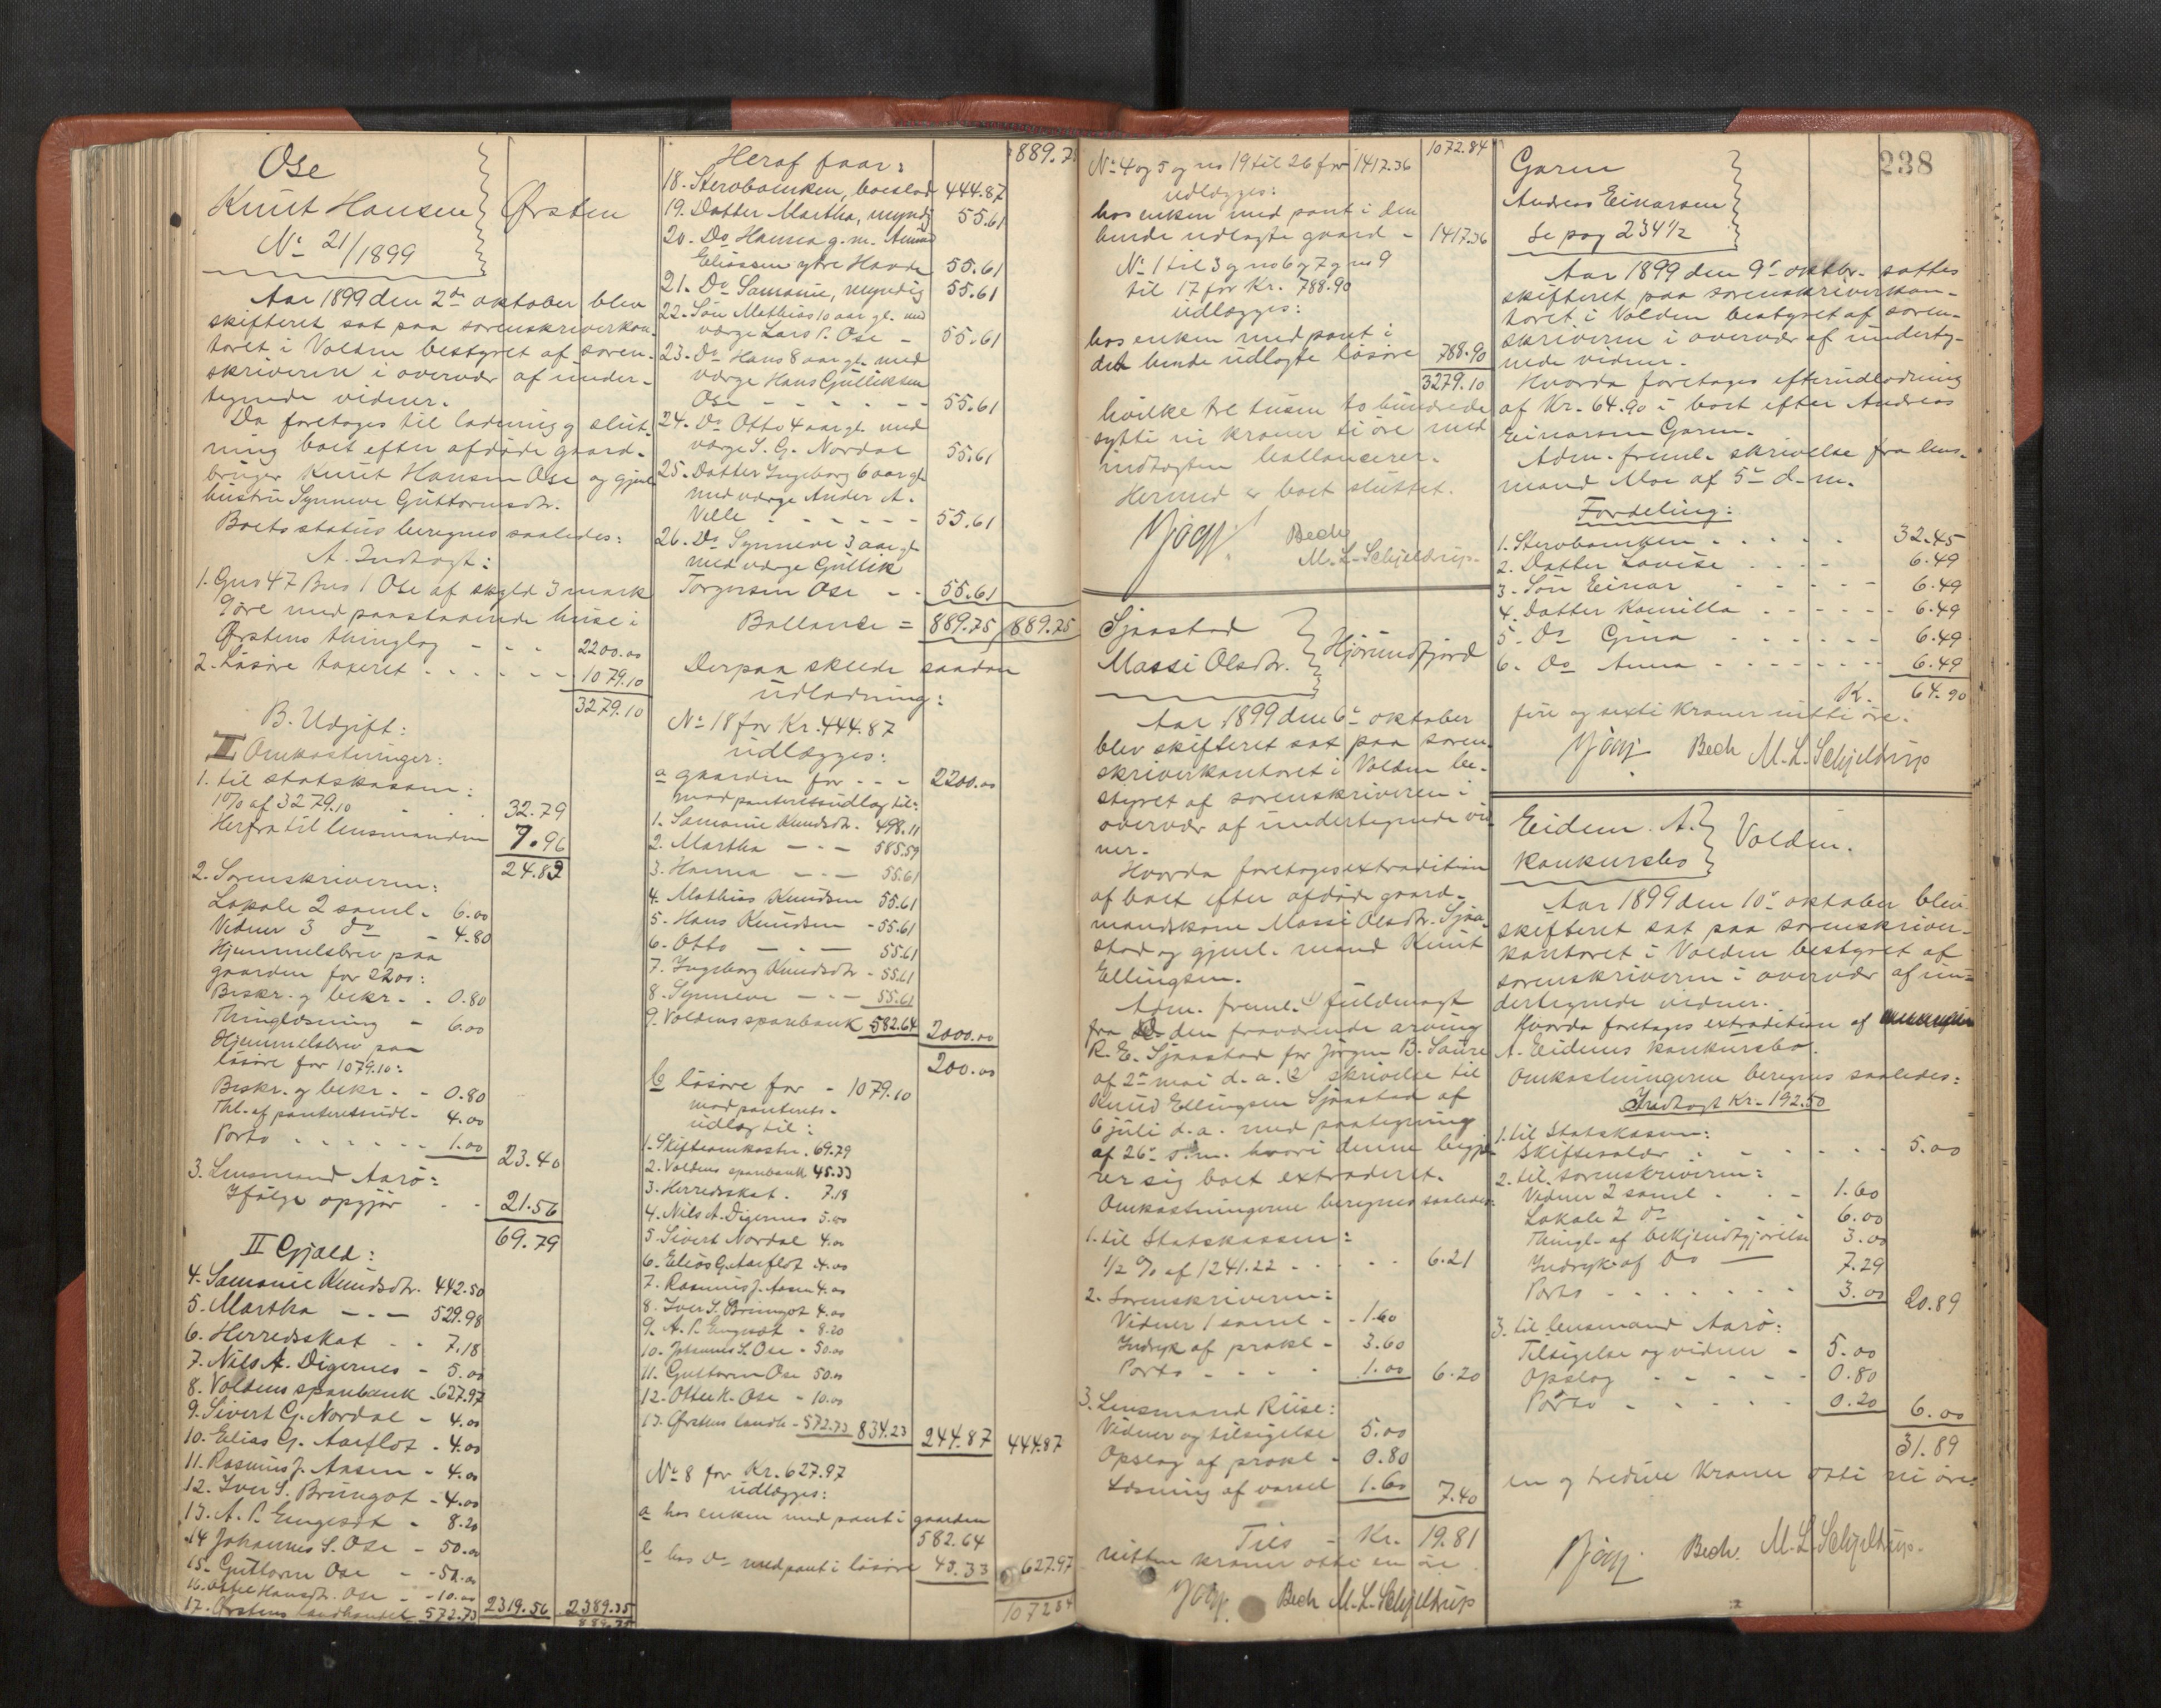 Ose
Knut Hansen Ørsten
No 21/1899
Aar 1899 den 2den oktober blev
skifteret sat paa sorenskriverkon-
toret i Volden bestyret af soren-
skriveren i overvær af under-
tegnede vidner.
Da foretages til lodning og slut-
ning boet efter afdøde gaard-
bruger Knut Hansen Ose og gjenl.
hustru Synneve Guttormsdtr.
Boets status beregnes saaledes:
A. Indtægt:
1. Gno 47 Bno 1 Ose af skyld 3 mark
9 øre med paastaaende huse i
Ørstens thinglag - - - 2200.00
2. Løsøre taxeret - - - - - 1079.10
3279.10
B. Udgift:
I Omkostninger:
1. til statskassen:
1% af 3279.10 32.79
Herfra til lensmanden 7.96
24.83
2. Sorenskriveren:
Lokale 2 saml. - 6.00
Vidner 3 do - 4.80
Hjemmelsbrev paa
gaarden for 2200:
Beskr. og bekr. - . 0.80
Thinglæsning - 6.00
Hjemmelsbrev paa
løsøre for 1079.10:
Beskr. og bekr. - - 0.80
Thl. af panteretsudl. - 4.00
Porto - - - - - - 1.00 23.40
3. Lensmand Aarø:
Ifølge opgjør - - 21.56
69.79
II Gjæld:
4. Samonie Knudsdtr. 442.50
5. Martha - - - 529.98
6. Herredsskat - - 7.18
7. Nils A. Digernes - 5.00
8. Voldens sparebank - 627.97
9. Sivert G. Nordal - 4.00
10. Elias G. Aarflot - 4.00
11. Rasmus J. Aasen - 4.00
12. Iver S. Brungot - 4.00
13. A. P. Engeset - 8.20
14 Johannes S. Ose - 50.00
15. Guttorm Ose - - 50.00
16. Ottel Hansdtr. Ose - - 10.00
17. Ørstens landhandel 572.73 2319.56 2389.35
889.75
Heraf faar: 889.75
18. Stervboenken, boeslod 444.87
19. Datter Martha, myndig 55.61
20. Do Hanna g.m. Amund
Eliassen ytre Hovde 55.61
21. Do Samonie, myndig 55.61
22. Søn Mathias 10 aar gl. med
værge Lars P. Ose - 55.61
23. Do Hans 8 aar gl. med
værge Hans Gulliksen
Ose - - - - - - - 55.61
24. Do Otto 4 aar gl. med
værge S. G. Nordal 55.61
25. Datter Ingeborg 6 aar gl
med værge Ander A.
Velle - - - - - - 55.61
26. Do Synneve 3 aar gl
med værge Gullik
Torgersen Ose - - 55.61
Ballance = 889.75 889.75
Derpaa skeede saadan
udlodning:
No 18 for Kr. 444.87
udlægges:
a gaarden for - - - 2200.00
mod panteretsudlæg til:
1. Samonie Knudsdtr. 498.11
2. Martha - - - 585.59
3. Hanna - - - 55.61
4. Mathias Knudsen 55.61
5. Hans Knudsen - 55.61
6. Otto - - - 55.61
7. Ingeborg Knudsdtr - 55.61
8. Synneve - - - 55.61
9. Voldens sparebank 582.64 2000.00
200.00
b løsøre for - 1079.10
mod panterets-
udlæg til:
1. Skifteomkostn. 69.79
2. Voldens sparebank 45.33
3. Herredsskat. 7.18
4. Nils A. Digernes 5.00
5. Sivert Nordal 4.00
6. Elias G. Aarflot 4.00
7. Rasmus J. Aasen 4.00
8. Iver S. Brungot 4.00
9. A. P. Engeset - 8.20
10. Johannes S. Ose - 50.00
11. Guttorm Ose 50.00
12. Ottel H. Ose - 10.00
13. Ørstens landh. - 572.73 834.23 244.87 444.87
No 8 for Kr. 627.97
udlægges:
a hos enken med pant i gaarden
582.64
b hos do med pant i løsøre 45.33 627.97
1072.84
1072.84
No 4 og 5 og no 19 til 26 for 1417.36
udlægges:
hos enken med pant i den
hende udlagte gaard - 1417.36
No 1 til 3 og no 6 og 7 og no 9
til 17 for Kr. 788.90
udlægges:
hos enken med pant i
det hende udlagte løsøre 788.90
3279.10
hvilke tre tusen to hundrede
sytti ni kroner ti øre med
indtægten ballancerer.
Hermed er boet sluttet.
Bech
M. L. Schjeldrup.
Sjaastad
Massi Olsdtr. Hjørundfjord
Aar 1899 den 6te oktober
blev skifteret sat paa soren-
skriverkontoret i Volden be-
styret af sorenskriveren i
overvær af undertegnede vid-
ner.
Hvorda foretages extradition
af boet efter afdøde gaard-
mandskone Massi Olsdtr. Sjaa-
stad og gjenl. mand Knut
Ellingsen.
Adm. freml. 1) fuldmagt
fra den fraværende arving
R. E. Sjaastad for Jørgen B. Saure
af 2den mai d.a. 2) skrivelse til
Knud Ellingsen Sjaastad af
6 juli d.a. med paategning
af 26de s.m. hvori denne begjæ-
rer sig boet extraderet.
Omkostningerne beregnes saaledes:
1. til Statskassen:
1/2 % af 1241.22 - - - - 6.21
2. Sorenskriveren:
Vidner 1 saml - - 1.60
Indryk af prokl - 3.60
Porto - - - - 1.00 6.20
3. Lensmand Riise:
Vidner og tilsigelse 5.00
Opslag af prokl - 0.80
Læsning af varsel 1.60 7.40
Tils - Kr. 19.81
nitten kroner otti en øre
Bech M. L. Schjeldrup
238
Garen
Andreas Einarsen
Se pag 234 1/2
Aar 1899 den 9de oktbr. sattes
skifteret paa sorenskriverkon-
toret i Volden bestyret af soren-
skriveren i overvær af underteg-
nede vidner.
Hvorda foretages efterudlodning
af Kr. 64.90 i boet efter Andreas
Einarsen Garen.
Adm. freml. skrivelse fra lens-
mand Moe af 5te d.m.
Fordeling:
1. Stervboenken - - - - - 32.45
2. Datter Lovise - - - - 6.49
3. Søn Einar - - - - - 6.49
4. Datter Kamilla - - - - - - 6.49
5. Do Gina - - - - - - 6.49
6. Do Anna - - - - - - - 6.49
K. 64.90
fire og sexti kroner nitti øre.
Bech M. L. Schjeldrup
Eidem. A. Volden.
konkursbo
Aar 1899 den 10de oktober blev
skifteret sat paa sorenskriver-
kontoret i Volden bestyret af
sorenskriveren i overvær af un-
dertegnede vidner.
Hvorda foretages extradition af
A. Eidems konkursbo.
Omkostningerne beregnes saaledes:
Indtægt Kr. 192.50
1. til Statskassen:
Skiftesalær - - - - - - 5.00
2. til sorenskriveren:
Vidner 2 saml - - - 1.60
Lokale 2 do - - - 6.00
Thingl. af bekjendtgjørelse 3.00
Indryk af do - 7.29
Porto - - - - - - - 3.00 20.89
3. til lensmand Aarø:
Tilsigelse og vidner - 5.00
Opslag - - - - - 0.80
Porto - - - - - 0.20 6.00
31.89
en og tredive kroner otti ni øre.
Bech. M. L. Schjeldrup.